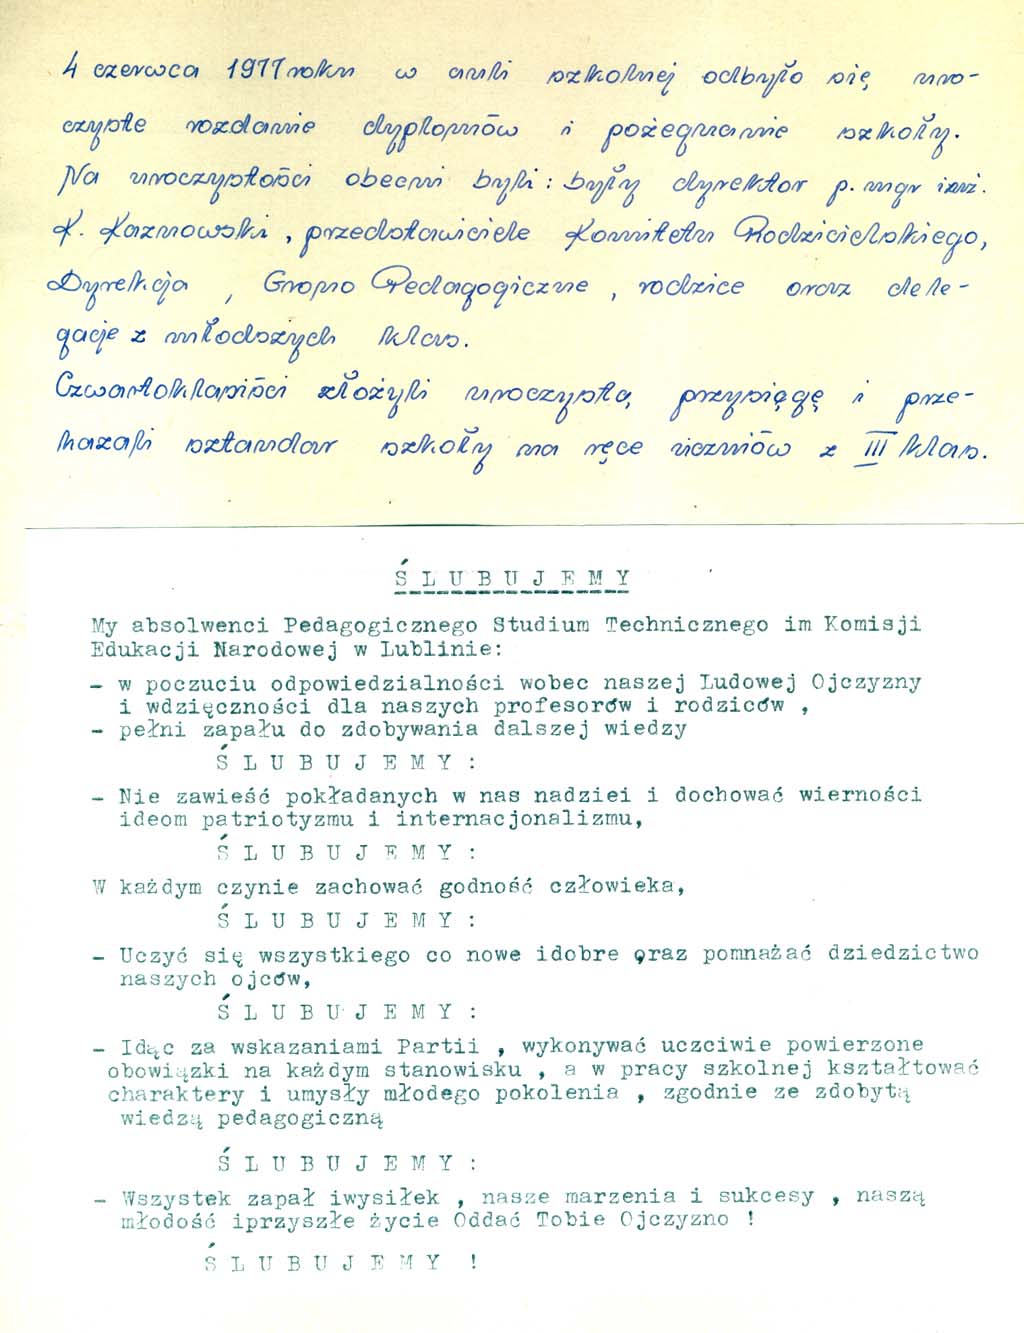 4 czerwca 1977 roku w auli szkolnej odbyło się uro-
czyste rozdanie dyplomów i pożegnanie szkoły.
Na uroczystości obecni byli : były dyrektor p. mgr inż.
K. Kaznowski , przedstawiciele Komitetu Rodzicielskiego,
Dyrekcja , Grono Pedagogiczne , rodzice oraz dele-
gacje z młodszych klas.
Czwartoklasiści złożyli uroczystą przysięgę i prze-
kazali sztandar szkoły na ręce uczniów z III klas.
Ś L U B U J E M Y
My absolwenci Pedagogicznego Studium Technicznego im Komisji
Edukacji Narodowej w Lublinie:
- w poczuciu odpowiedzialności wobec naszej Ludowej Ojczyzny
i wdzięczności dla naszych profesorów i rodziców ,
- pełni zapału do zdobywania dalszej wiedzy
Ś L U B U J E M Y :
- Nie zawieść pokładanych w nas nadziei i dochować wierności
ideom patriotyzmu i internacjonalizmu,
Ś L U B U J E M Y :
W każdym czynie zachować godność człowieka,
Ś L U B U J E M Y :
- Uczyć się wszystkiego co nowe idobre oraz pomnażać dziedzictwo
naszych ojców,
Ś L U B U J E M Y :
- Idąc za wskazaniami Partii , wykonywać uczciwie powierzone
obowiązki na każdym stanowisku , a w pracy szkolnej kształtować
charaktery i umysły młodego pokolenia , zgodnie ze zdobytą
wiedzą pedagogiczną
Ś L U B U J E M Y :
- Wszystek zapał iwysiłek , nasze marzenia i sukcesy , naszą
młodość iprzyszłe życie Oddać Tobie Ojczyzno !
Ś L U B U J E M Y !